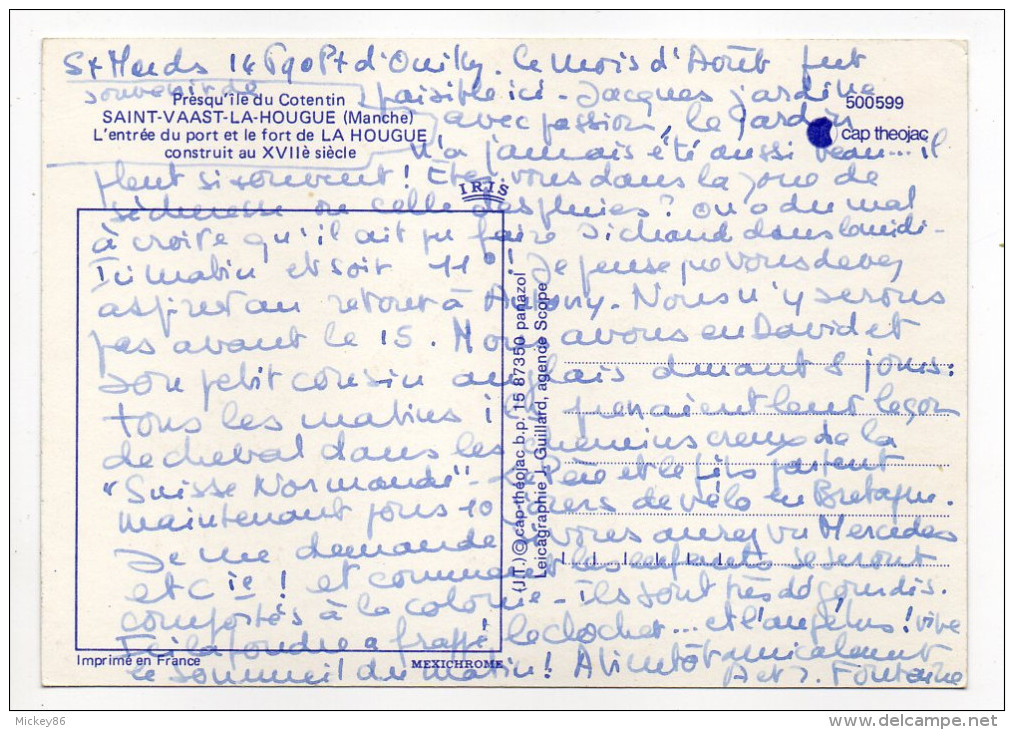 14690 Pt d'Ouilly. le mois d'Août fut
souvenir de paisible ici - Jacques jardine
Presqu'île du Cotentin
500599
SAINT-VAAST-LA-HOUGUE (Manche)
avec passion, le jardin
cap theojac
L'entrée du port et le fort de LA HOUGUE
construit au XVIIè siècle
n'a jamais été aussi beau... il
pleut si souvent ! Etes-vous dans la zone de
IRIS
sécheresse ou celle des pluies ? On a du mal
à croire qu'il ait pu faire si chaud dans le midi -
Ici matin et soir 11° ! Je pense que vous devez
aspirer au retour à Antony. Nous n'y serons
pas avant le 15. Nous avons eu David et
son petit cousin anglais durant 8 jours :
tous les matins ils prenaient leur leçon
de cheval dans les chemins creux de la
"Suisse Normande" - Le Père et le fils partent
maintenant pour 10 jours de vélo en Bretagne.
Je me demande si vous aurez vu Mercedes
et Cie ! et comment les enfants se seront
comportés à la colonie - ils sont très dégourdis.
Ici la foudre a frappé le clocher... et l'angélus ! vive
le sommeil du matin ! A bientôt amicalement
A et J. Fontaine
(J.T.) © cap-theojac b.p. 15 87350 panazol
Leicagraphie J. Guillard, agence Scope
Imprimé en France
MEXICHROME
Mickey86
www.delcampe.net